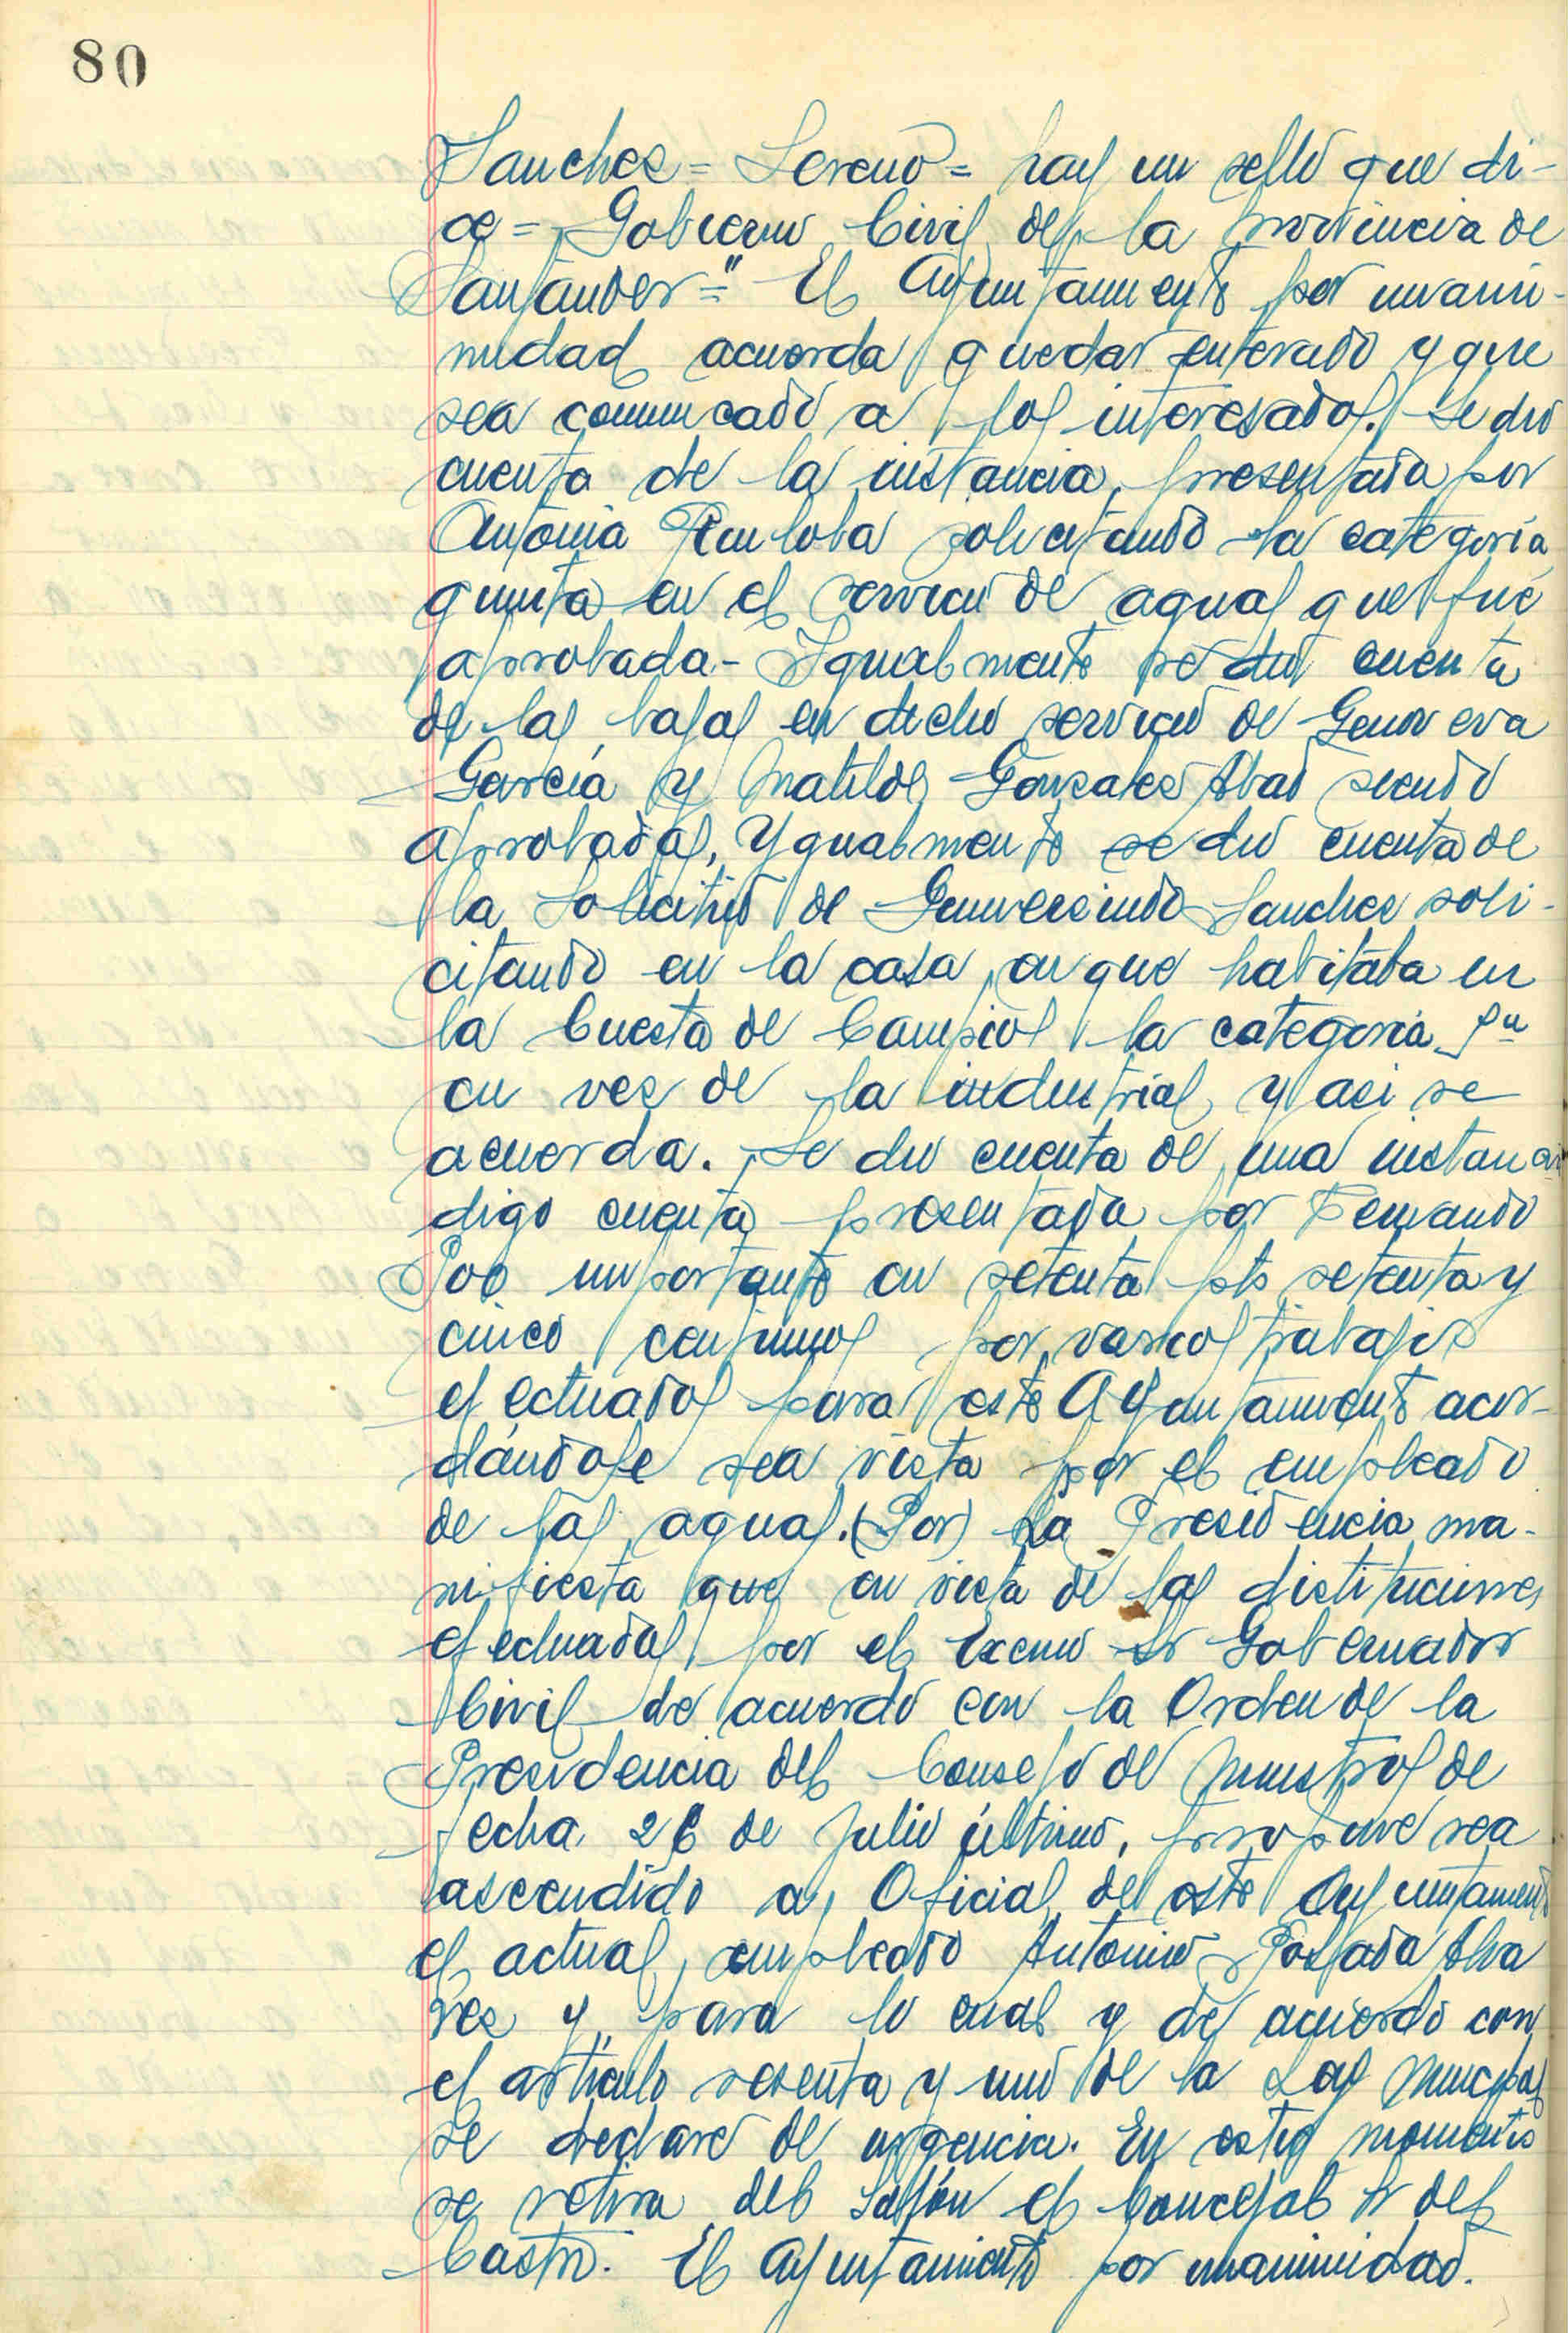 80
Sanchez = Lereno = hay un sello que di-
ce = Gobierno Civil de la provincia de
Santander =" El Ayuntamiento por unani-
midad acuerda quedar enterado y que
sea comunicado a los interesados. Se dio
cuenta de la instancia presentada por
Antonia Ruiloba solicitando la categoría
quinta en el servicio de aguas que fué
aprobada - Igualmente se dio cuenta
de las bajas en dicho servicio de Genoveva
García y Matilde Gonzalez Abad siendo
aprobadas, Ygualmente se dio cuenta de
la Solicitud de Gumersindo Sanchez soli-
citando en la casa en que habitaba en
la Cuesta de Campios la categoria 5ª
en vez de la industrial y asi se
acuerda. Se dio cuenta de una instancia
digo cuenta presentada por Fernando
Poo importante en setenta pts setenta y
cinco centimos por varios trabajos
efectuados para este Ayuntamiento acor-
dándose sea vista por el empleado
de las aguas. (Por) La Presidencia ma-
nifiesta que en vista de las distituciones
efectuadas por el Excmo Sr Gobernador
Civil de acuerdo con la Orden de la
Presidencia del Consejo de Ministros de
fecha 26 de Julio último, propone sea
ascendido a Oficial de este Ayuntamiento
el actual empleado Antonio Posada Alva
rez y para lo cual y de acuerdo con
el articulo sesenta y uno de la Ley Municipal
se declare de urgencia. En estos momentos
se retira del Salón el Concejal Sr del
Castro. El Ayuntamiento por unanimidad.